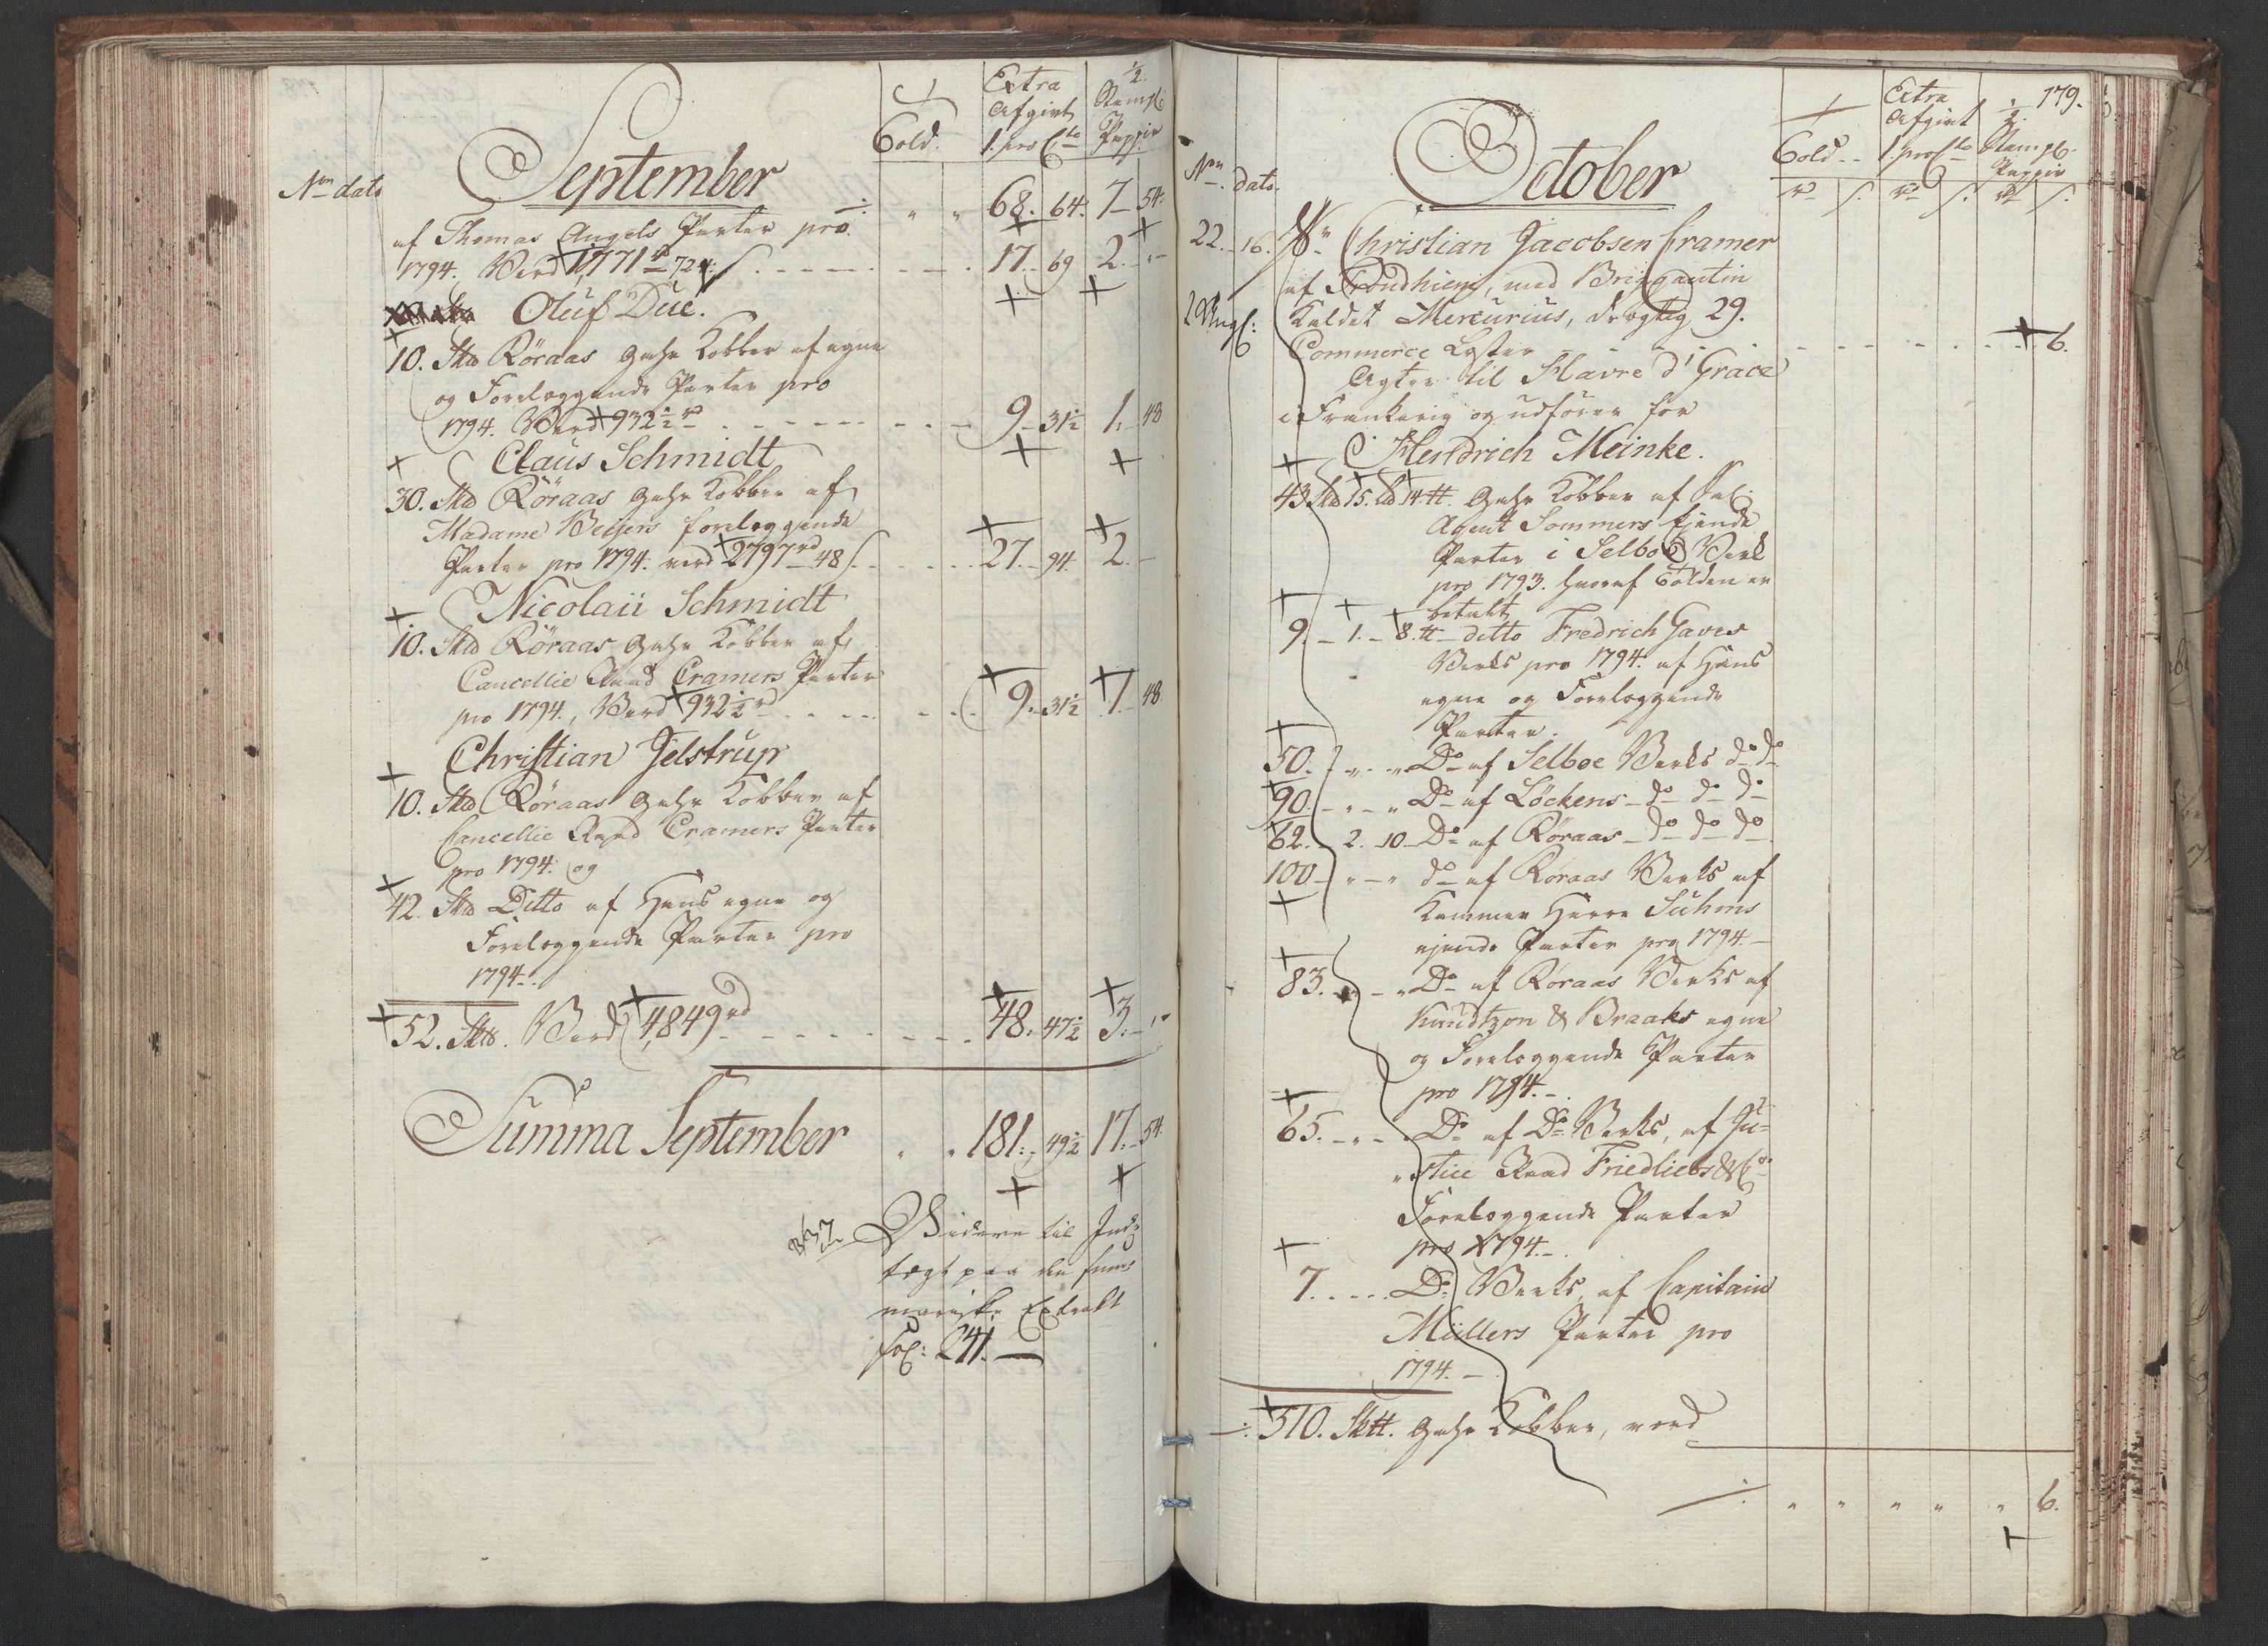 Extra ½
Afgivt Stempl:
Told. 1. pro Cto Pappir
September
No dato
68. 64. 7 54.
af Thomas Angels Parter pro
1794. Værd 1,771 rd 72 s. 17. 69 2. "
Oluf Due.
10. Skd Röraas Gahr Kobber af egne
og Foreloggende Parter pro
1794. Værd 932½ rd 9. 31½ 1. 48
Claus Schmidt
30. Skd Röraas Gahr Kobber af
Madame Beÿers foreloggende
Parter pro 1794. værd 2797 rd 48 s. 27. 94. 2. -
Nicolaii Schmidt
10. Skd Röraas Gahr Kobber af
Cancellie Raad Cramers Parter
pro 1794, Værd 932½ rd 9. 31½ 1. 48
Christian Jelstrup
10. Skd Röraas Gahr Kobber af
Cancellie Raad Cramers Parter
pro 1794. og
42. Skd Ditto af Hans egne og
Foreloggende Parter pro
1794.
52. Skd. Værd 4,849 rd 48. 47½ 3. "
Summa September " " 181. 49½ 17. 54.
Videre til Ind-
tægt paa den sum-
mariske Extrakt
fol: 241.
179.
Extra ½
Afgivt Stempl.
Told. 1. pro Cto Pappir
rd s. rd s. rd s.
October
No dato.
22. 16. Sr Christian Jacobsen Cramer
af Trondhiem, med Briggantin
Kaldet Mercurius, drægtig 29.
Commerce Læster 6.
Agter til Havre d'Grace
i Frankerig og udförer for
Hendrich Meinke.
43 Skd 15. Ld 14 tt. Gahr Kobber af Sal.
Agent Sommers Ejende
Parter i Selboe Værk
pro 1793. hvoraf Tolden er
betalt
9. 1. 8. tt ditto Fredrich Gaves
Værks pro 1794. af Hans
egne og Foreloggende
Parter.
50. " " Do af Selboe Værks do do
90. " " Do af Löckens do do do
62. 2. 10. Do af Röraas do do do
100 " " do af Röraas Værks af
Kammer Herre Suhms
ejende Parter pro 1794.
83. " " Do af Röraas Værks af
Knudtzon & Braaks egne
og Foreloggende Parter
pro 1794.
65. " " Do af Do Værks, af Ju-
stice Raad Friedliebs & Co
Foreloggende Parter
pro 1794.
7. Do Værks, af Capitain
Müllers Parter pro
1794.
510. Sktt. Gahr Kobber, værd
" " " " " 6.